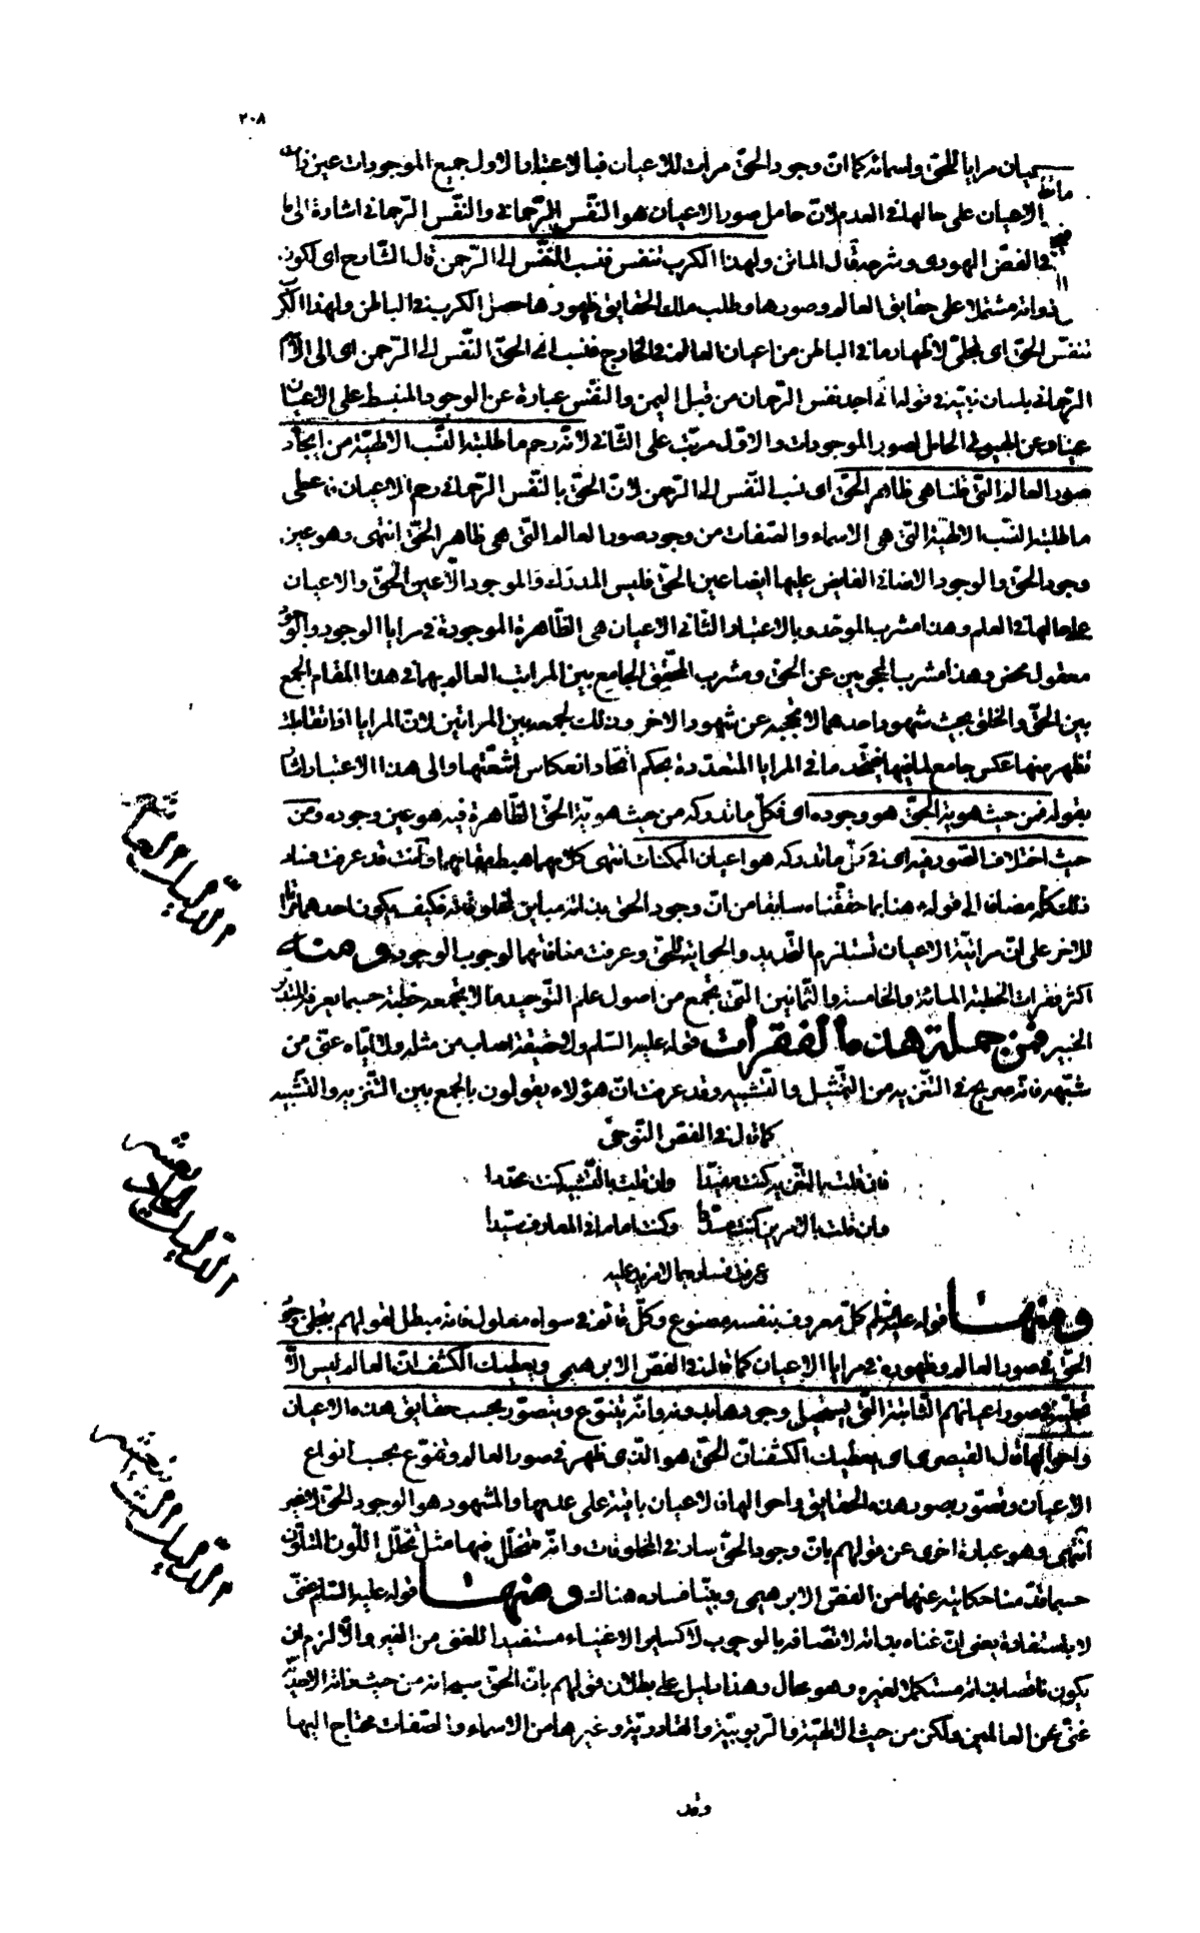 ٢٠٨
عيان مرايا للحق واسمائه كما ان وجود الحق مرات للاعيان فبالاعتبار الاول جميع الموجودات عين ذات
الاعيان على حالها فى العدم لان حامل صور الاعيان هو النّفس الرّحمانى والنّفس الرّحمانى اشارة الى ما
فى الفصّ الهودى وشرحه قال الماتن ولهذا الكرب تنفس فنسب النّفس الى الرّحمن قال الشّارح اى لكون
ذواته مشتملا على حقايق العالم وصورها وطلب تلك الحقايق ظهورها حصل الكرب فى الباطن ولهذا الكرب
تنفّس الحقّ اى تجلّى لاظهار ما فى الباطن من اعيان العالم فى الخارج فنسب الى الحقّ النّفس الى الرّحمن اى الى الاسم
الرّحمانى بلسان نبيّه فى قوله انى اجد نفس الرّحمان من قبل اليمن والنّفس عبارة عن الوجود المنبسط على الاعيان
عينا وعن الهيولى الحامل لصور الموجودات والاوّل مرتّب على الثّانى لانّه رحم ما طلبته النّسب الالهيّة من ايجاد
صور العالم الّتى قلنا هى ظاهر الحقّ اى نسب النّفس الى الرّحمن لانّ الحقّ بالنّفس الرّحمانى رحم الاعيان فاعطى
ما طلبته النّسب الالهيّة الّتى هى الاسماء والصّفات من وجود صور العالم الّتى هى ظاهر الحقّ انتهى وهو عين
وجود الحقّ والوجود الاضافى الفايض عليها ايضا عين الحقّ فليس المدرك والموجود الّا عين الحقّ والاعيان
على حالها فى العلم وهذا مشرب الموحّد وبالاعتبار الثّانى الاعيان هى الظّاهرة الموجودة فى مرايا الوجود والوجود
معقول محض وهذا مشرب المحجوبين عن الحقّ ومشرب المحقّق الجامع بين المراتب العالم بهما فى هذا المقام الجمع
بين الحقّ والخلق بحيث شهود احدهما لا يحجبه عن شهود الاخر وذلك لجمعه بين المراتين لانّ المرايا اذا تقابلت
تظهر منها عكس جامع لما فيها فيتّحد ما فى المرايا المتعدّدة بحكم اتّحاد انعكاس اشعّتها والى هذا الاعتبار اشار
بقوله فمن حيث هويّة الحقّ هو وجوده اى فكلّ ما ندركه من حيث هويّة الحقّ الظّاهرة فيه هو عين وجوده ومن
حيث اختلاف الصّور فيه اى فى كلّ ما ندركه هو اعيان الممكنات انتهى كلامهما هبط مقامهما وانت قد عرفت فساد
ذلك كلّه مضافا الى فساد هنا بما حقّقناه سابقا من انّ وجود الحقّ بذاته مباين لمخلوقاته فكيف يكون احدهما مرآتا
للاخر على انّ مراتيّة الاعيان تستلزم التّحديد والحواية للحقّ وعرفت منافاتهما لوجوب الوجود ومنه
اكثر فقرات الخطبة المائة والخامسة والثّمانين الّتى تجمع من اصول علم التّوحيد ما لا تجمعه خطبة حسبما يعرفه المتدبّر
الخبير فمن جملة هذه الفقرات قوله عليه السّلم ولا حقيقته اصاب من مثّله ولا ايّاه عنى من
شبّهه فانّه صريح فى التّنزيه من التّمثيل والتّشبيه وقد عرفت انّ هؤلاء يقولون بالجمع بين التّنزيه والتّشبيه
كما قال فى الفصّ النّوحى
فان قلت بالتّنزيه كنت مقيّدا وان قلت بالتّشبيه كنت محدّدا
وان قلت بالامرين كنت مسدّدا وكنت اماما فى المعارف سيّدا
عرفت فساده بما لا مزيد عليه
ومنها قوله عليه السّلم كلّ معروف بنفسه مصنوع وكلّ قائم فى سواه معلول فانّه مبطل لقولهم بتجلّى وجود
الحقّ فى صور العالم وظهوره فى مرايا الاعيان كما قال فى الفصّ الابرهيمى ويعطيك الكشف انّ العالم ليس الّا
تجلّيه فى صور اعيانهم الثّابتة الّتى يستحيل وجودها بدونه وانّه يتنوّع ويتصوّر بحسب حقايق هذه الاعيان
واحوالها قال القيصرى اى يعطيك الكشف انّ الحقّ هو الّذى ظهر فى صور العالم وتنوّع بحسب انواع
الاعيان وتصوّر بصور هذه الحقايق واحوالها فالاعيان باقية على عدمها والمشهود هو الوجود الحقّ لا غير
انتهى وهو عبارة اخرى عن قولهم بانّ وجود الحقّ سار فى المخلوقات وانّه متخلّل فيها مثل تخلّل اللّون المتلوّن
حسبما قدّمنا حكايته عنهما من الفصّ الابرهيمى وبيّنا فساده هناك ومنها قوله عليه السّلم غنىّ
لا باستفادة يعنى انّ غناه بذاته لاتّصافه بالوجوب لا كساير الاغنياء مستفيدا للغنى من الغير والّا لزم ان
يكون ناقصا بذاته مستكملا لغيره وهو محال وهذا دليل على بطلان قولهم بانّ الحقّ سبحانه من حيث ذاته الاحديّة
غنىّ عن العالمين ولكن من حيث الالهيّة والرّبوبيّة والقادريّة وغيرها من الاسماء والصّفات محتاج اليها
وقد
الدّليل العاشر
الدّليل الحادى عشر
الدّليل الثانى عشر